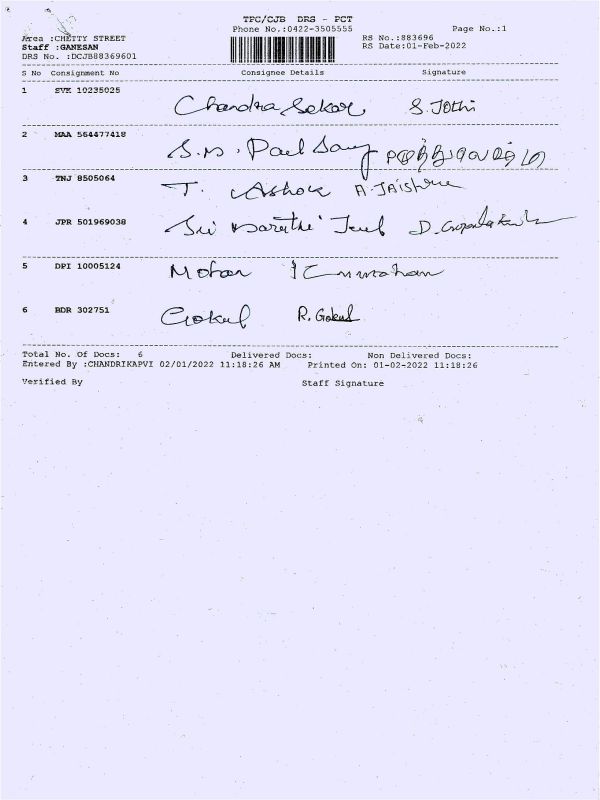 TPC/CJB DRS - PCT
Phone No.:0422-3505555
Page No.:1
Area :CHETTY STREET
Staff :GANESAN
DRS No. :DCJB88369601
RS No.:883696
RS Date:01-Feb-2022
S No Consignment No Consignee Details Signature
1 SVK 10235025
Chandra Sekar S. Jothi
2 MAA 564477418
S.M. Paul
3 TNJ 8505064
T. Ashok A. JAISHREE
4 JPR 501969038
Sri D. Gopalakrish
5 DPI 10005124
Mohan
6 BDR 302751
Gokul R. Gokul
Total No. Of Docs: 6 Delivered Docs: Non Delivered Docs:
Entered By :CHANDRIKAPVI 02/01/2022 11:18:26 AM Printed On: 01-02-2022 11:18:26
Verified By Staff Signature